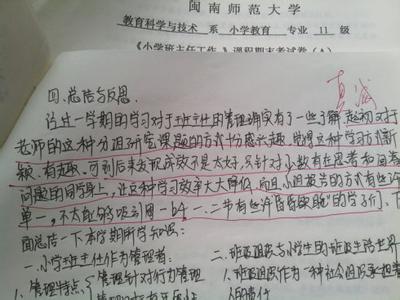 闽南师范大学
教育科学与技术 系 小学教育 专业 11 级
《小学班主任工作》课程期末考试卷(A)
真诚
四.总结与反思.
经过一学期的学习对于班主任的管理确实有了一些了解.起初对于
老师的这种分组研究课题的方式十分感兴趣,觉得这种学习方式新
颖.有趣.可到后来发现成效不是太好,只针对小数有在思考和回答
问题的同学身上,让这种学习效率大大降低.而且小组报告的方式有些许
单一,不太能够吸引同一b4、一、二节有些许昏昏欲睡的学子们、下
面总结一下本学期所学知识:
一.小学班主任作为管理者:
1.管理特点 管理针对行为管理
二.班级组织与小学生的班级生活世界
1.班级组织作为一种社会组织承担着